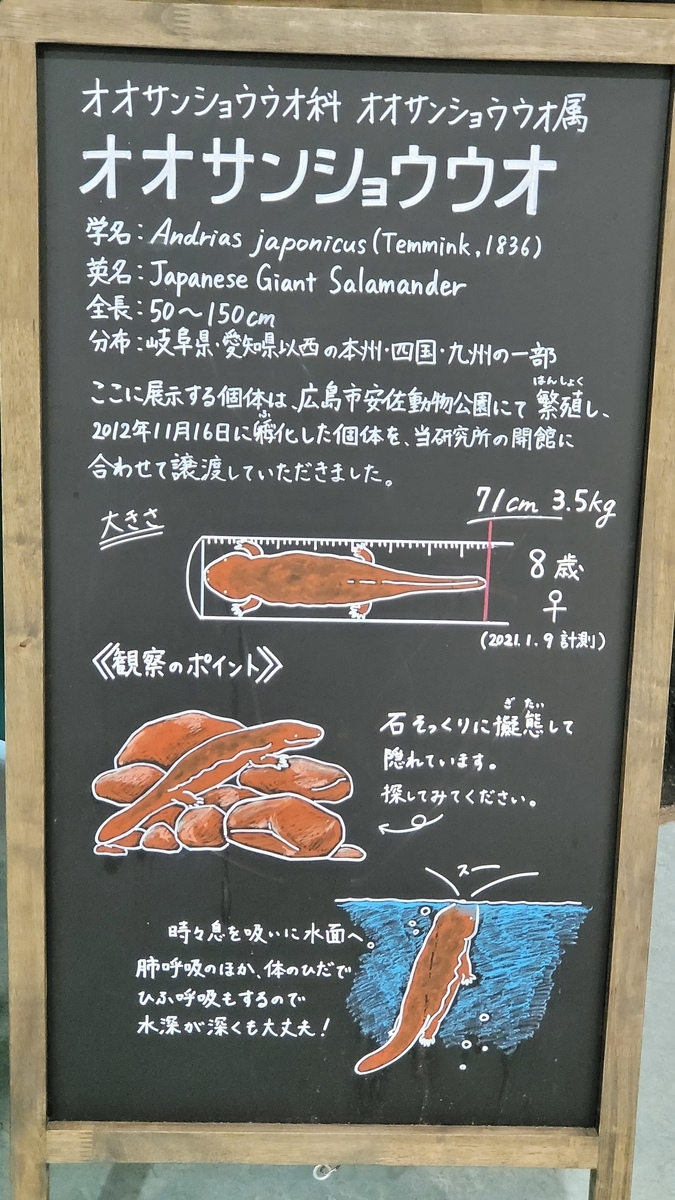 オオサンショウウオ科 オオサンショウウオ属
オオサンショウウオ
学名:Andrias japonicus(Temmink,1836)
英名:Japanese Giant Salamander
全長:50〜150cm
分布:岐阜県・愛知県以西の本州・四国・九州の一部
ここに展示する個体は、広島市安佐動物公園にて繁殖し、
はんしょく
2012年11月16日に孵化した個体を、当研究所の開館に
ふ
合わせて譲渡していただきました。
大きさ
71cm 3.5kg
8歳
♀
(2021.1.9計測)
《観察のポイント》
ぎたい
石そっくりに擬態して
隠れています。
探してみてください。
スー
時々息を吸いに水面へ。
肺呼吸のほか、体のひだで
ひふ呼吸もするので
水深が深くも大丈夫!